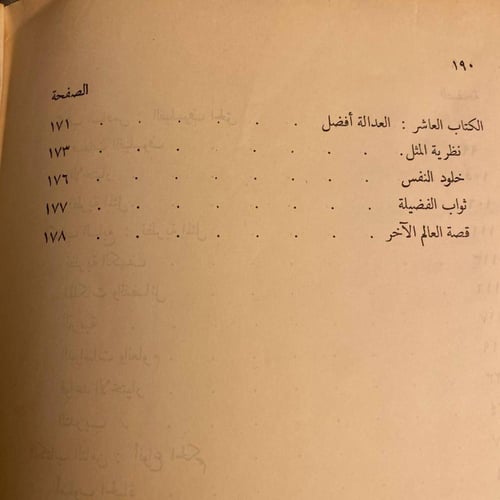 ١٩٠
الصفحة
الكتاب العاشر : العدالة أفضل . . . . . . . ١٧١
نظرية المثل . . . . . . . . . ١٧٣
خلود النفس . . . . . . . . ١٧٦
ثواب الفضيلة . . . . . . . . ١٧٧
قصة العالم الآخر . . . . . . . . ١٧٨